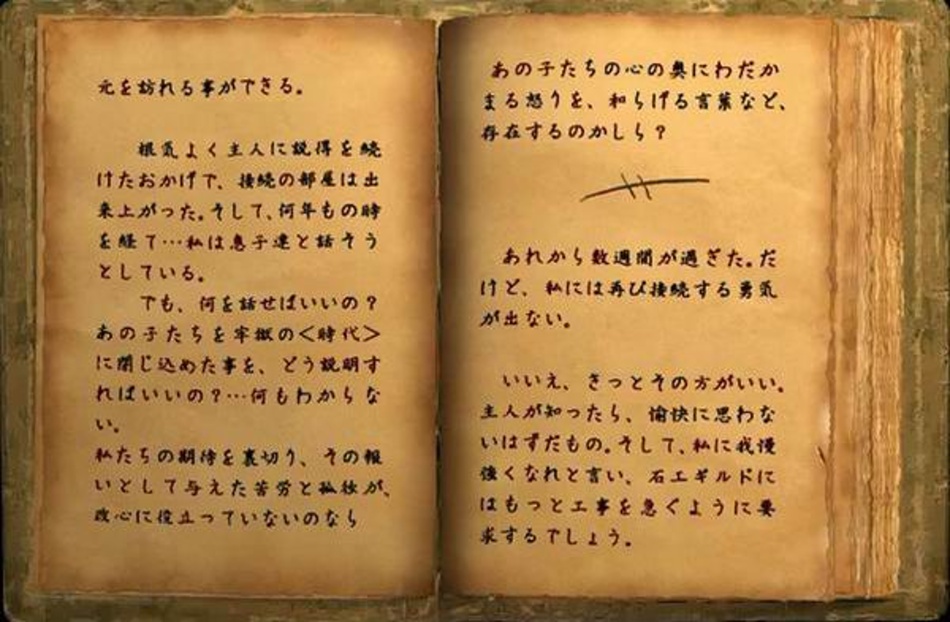 元を訪れる事ができる。
根気よく主人に説得を続
けたおかげで、接続の部屋は出
来上がった。そして、何年もの時
を経て…私は息子達と話そう
としている。
でも、何を話せばいいの？
あの子たちを牢獄の＜時代＞
に閉じ込めた事を、どう説明す
ればいいの？…何もわからな
い。
私たちの期待を裏切り、その報
いとして与えた苦労と孤独が、
改心に役立っていないのなら
あの子たちの心の奥にわだか
まる怒りを、和らげる言葉など、
存在するのかしら？
あれから数週間が過ぎた。だ
けど、私には再び接続する勇気
が出ない。
いいえ、きっとその方がいい。
主人が知ったら、愉快に思わな
いはずだもの。そして、私に我慢
強くなれと言い、石工ギルドに
はもっと工事を急ぐように要
求するでしょう。